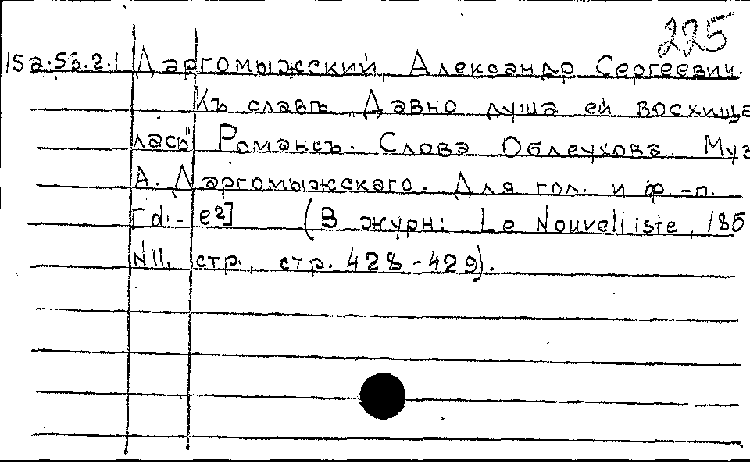 225
15а.5б.2.1 Даргомыжский, Александр Сергеевич.
Къ славѣ „Давно душа ей восхища
лась" Романсъ. Слова Облеухова. Муз
А. Даргомыжскаго. Для гол. и ф.-п.
[d¹- e²] (В журн: Le Nouvelliste, 185
N11, стр., стр. 428-429).